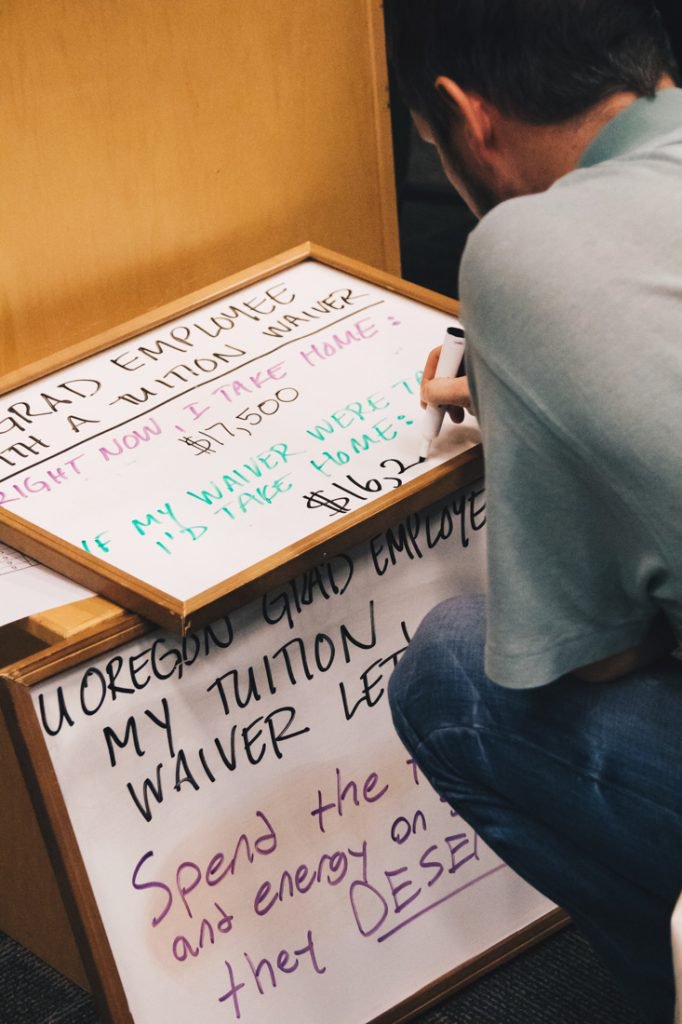 GRAD EMPLOYEE
TH A TUITION WAIVER
RIGHT NOW, I TAKE HOME:
$17,500
IF MY WAIVER WERE TA
I'D TAKE HOME:
$16,2
U OREGON GRAD EMPLOYE
MY TUITION
WAIVER LET
Spend the
and energy on
they DESE